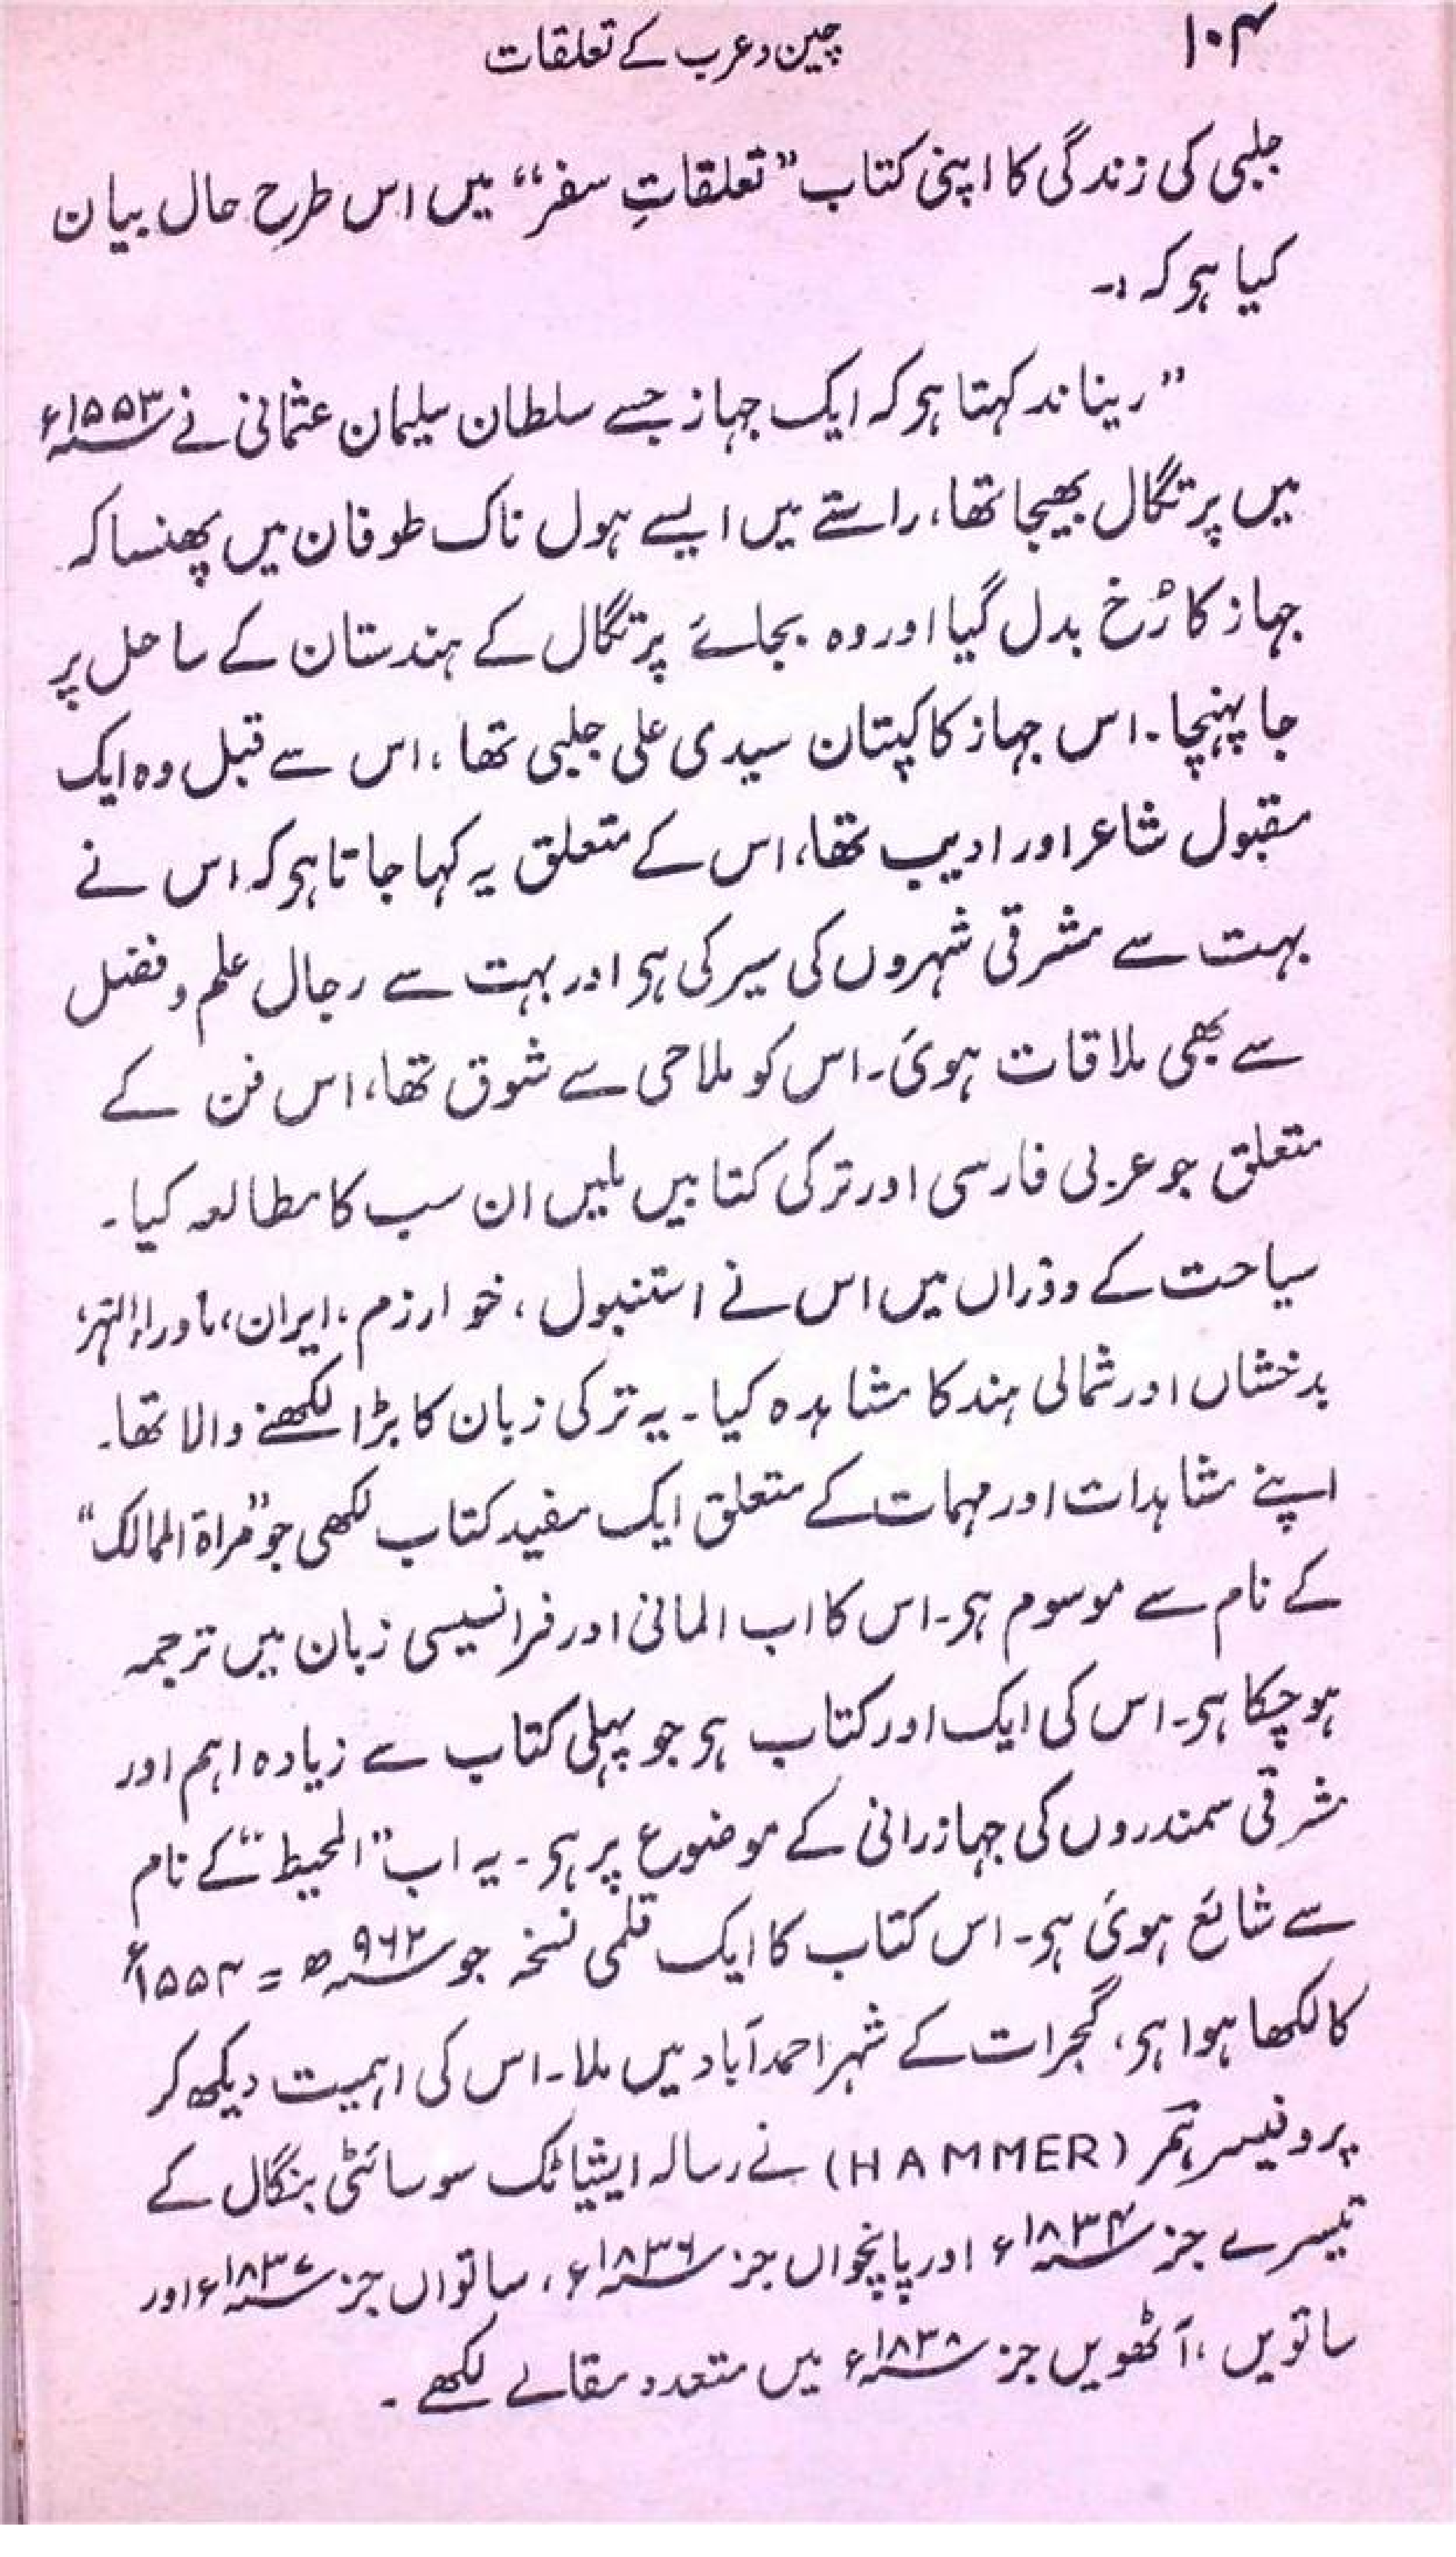 ۱۰۴
چین و عرب کے تعلقات
جلبی کی زندگی کا اپنی کتاب "تعلقاتِ سفر" میں اس طرح حال بیان
کیا ہو کہ :-
"ریناند کہتا ہو کہ ایک جہاز جسے سلطان سلیمان عثمانی نے ۱۵۵۳ء
میں پرتگال بھیجا تھا، راستے میں ایسے ہول ناک طوفان میں پھنسا کہ
جہاز کا رُخ بدل گیا اور وہ بجائے پرتگال کے ہندستان کے ساحل پر
جا پہنچا۔ اس جہاز کا کپتان سیدی علی جلبی تھا، اس سے قبل وہ ایک
مقبول شاعر اور ادیب تھا، اس کے متعلق یہ کہا جاتا ہو کہ اس نے
بہت سے مشرقی شہروں کی سیر کی ہو اور بہت سے رجال علم و فضل
سے بھی ملاقات ہوئ۔ اس کو ملاحی سے شوق تھا، اس فن کے
متعلق جو عربی فارسی اور ترکی کتابیں ملیں ان سب کا مطالعہ کیا۔
سیاحت کے دوراں میں اس نے استنبول، خوارزم، ایران، ماوراء النہر،
بدخشاں اور شمالی ہند کا مشاہدہ کیا۔ یہ ترکی زبان کا بڑا لکھنے والا تھا۔
اپنے مشاہدات اور مہمات کے متعلق ایک مفید کتاب لکھی جو "مراۃ الممالک"
کے نام سے موسوم ہو۔ اس کا اب المانی اور فرانسیسی زبان میں ترجمہ
ہو چکا ہو۔ اس کی ایک اور کتاب ہو جو پہلی کتاب سے زیادہ اہم اور
مشرقی سمندروں کی جہازرانی کے موضوع پر ہو۔ یہ اب "المحیط" کے نام
سے شائع ہوئ ہو۔ اس کتاب کا ایک قلمی نسخہ جو ۹۶۲ھ = ۱۵۵۴ء
کا لکھا ہوا ہو، گجرات کے شہر احمد آباد میں ملا۔ اس کی اہمیت دیکھ کر
پروفیسر ہَمَر (HAMMER) نے رسالہ ایشیاٹک سوسائٹی بنگال کے
تیسرے جز ۱۸۳۴ء اور پانچواں جز ۱۸۳۶ء، ساتواں جز ۱۸۳۷ء اور
ساتویں، آٹھویں جز ۱۸۳۸ء میں متعدد مقالے لکھے۔